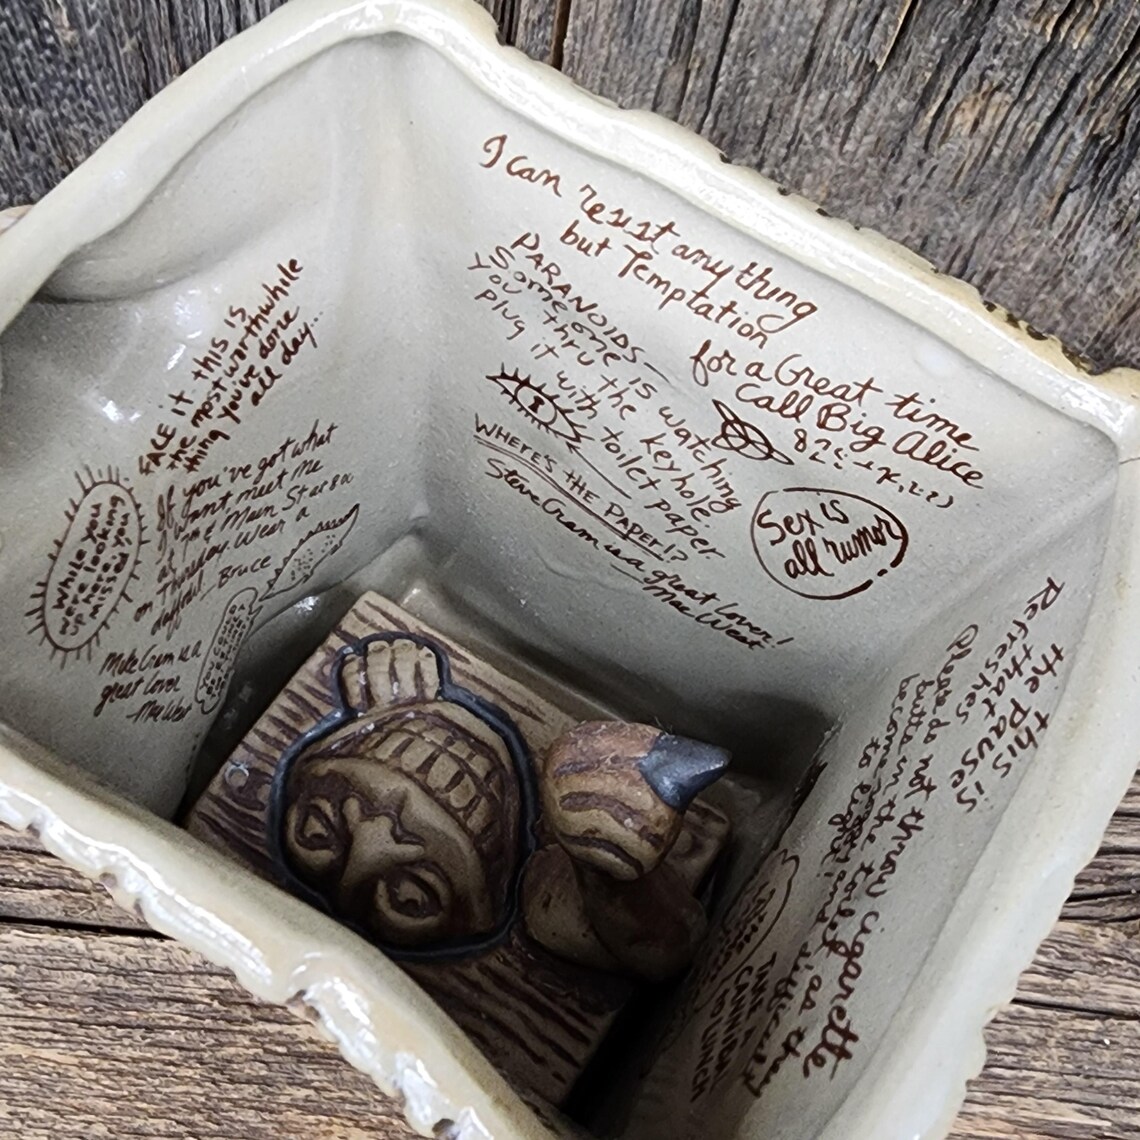 I can resist anything
but Temptation
for a Great time
Call Big Alice
PARANOIDS—
Someone is watching
you thru the keyhole.
plug it with toilet paper
WHERE'S THE PAPER!?
Steve Cram is a great lover!
Mae West
Sex is
all rumor
FACE it this is
the most worthwhile
thing you've done
all day...
If you've got what
I want meet me
at 7th & Main Star Bar
on Thursday. Wear a
daffodil - Bruce
While you
were looking
up here
missed you
Mike Cram is a
great lover
- Mae West
this is
the pause
that
Refreshes
Please do not throw cigarette
butts in the toilet as they
become soggy and difficult
to light!
TAKE A
CANNIBAL
TO LUNCH